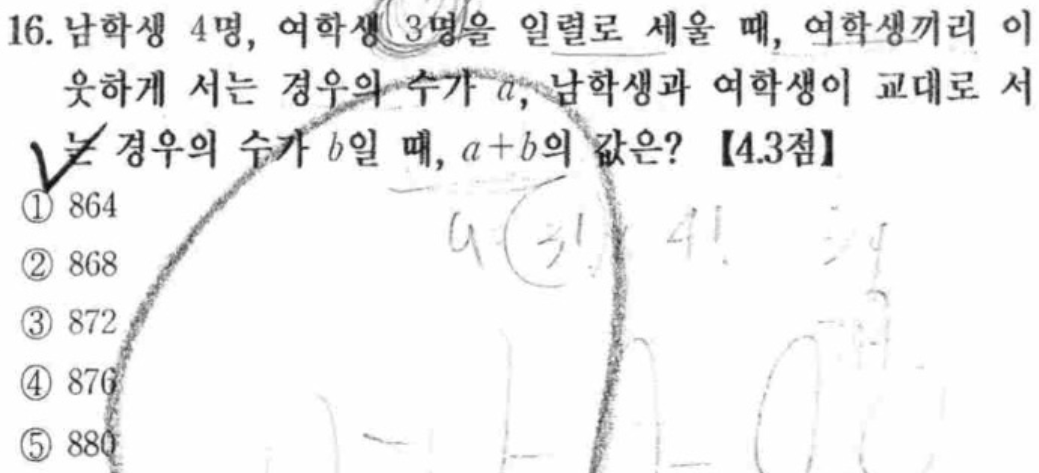 16. 남학생 4명, 여학생 3명을 일렬로 세울 때, 여학생끼리 이
웃하게 서는 경우의 수가 a, 남학생과 여학생이 교대로 서
는 경우의 수가 b일 때, a+b의 값은? 【4.3점】
① 864
4 3! 4!
② 868
③ 872
④ 876
⑤ 880